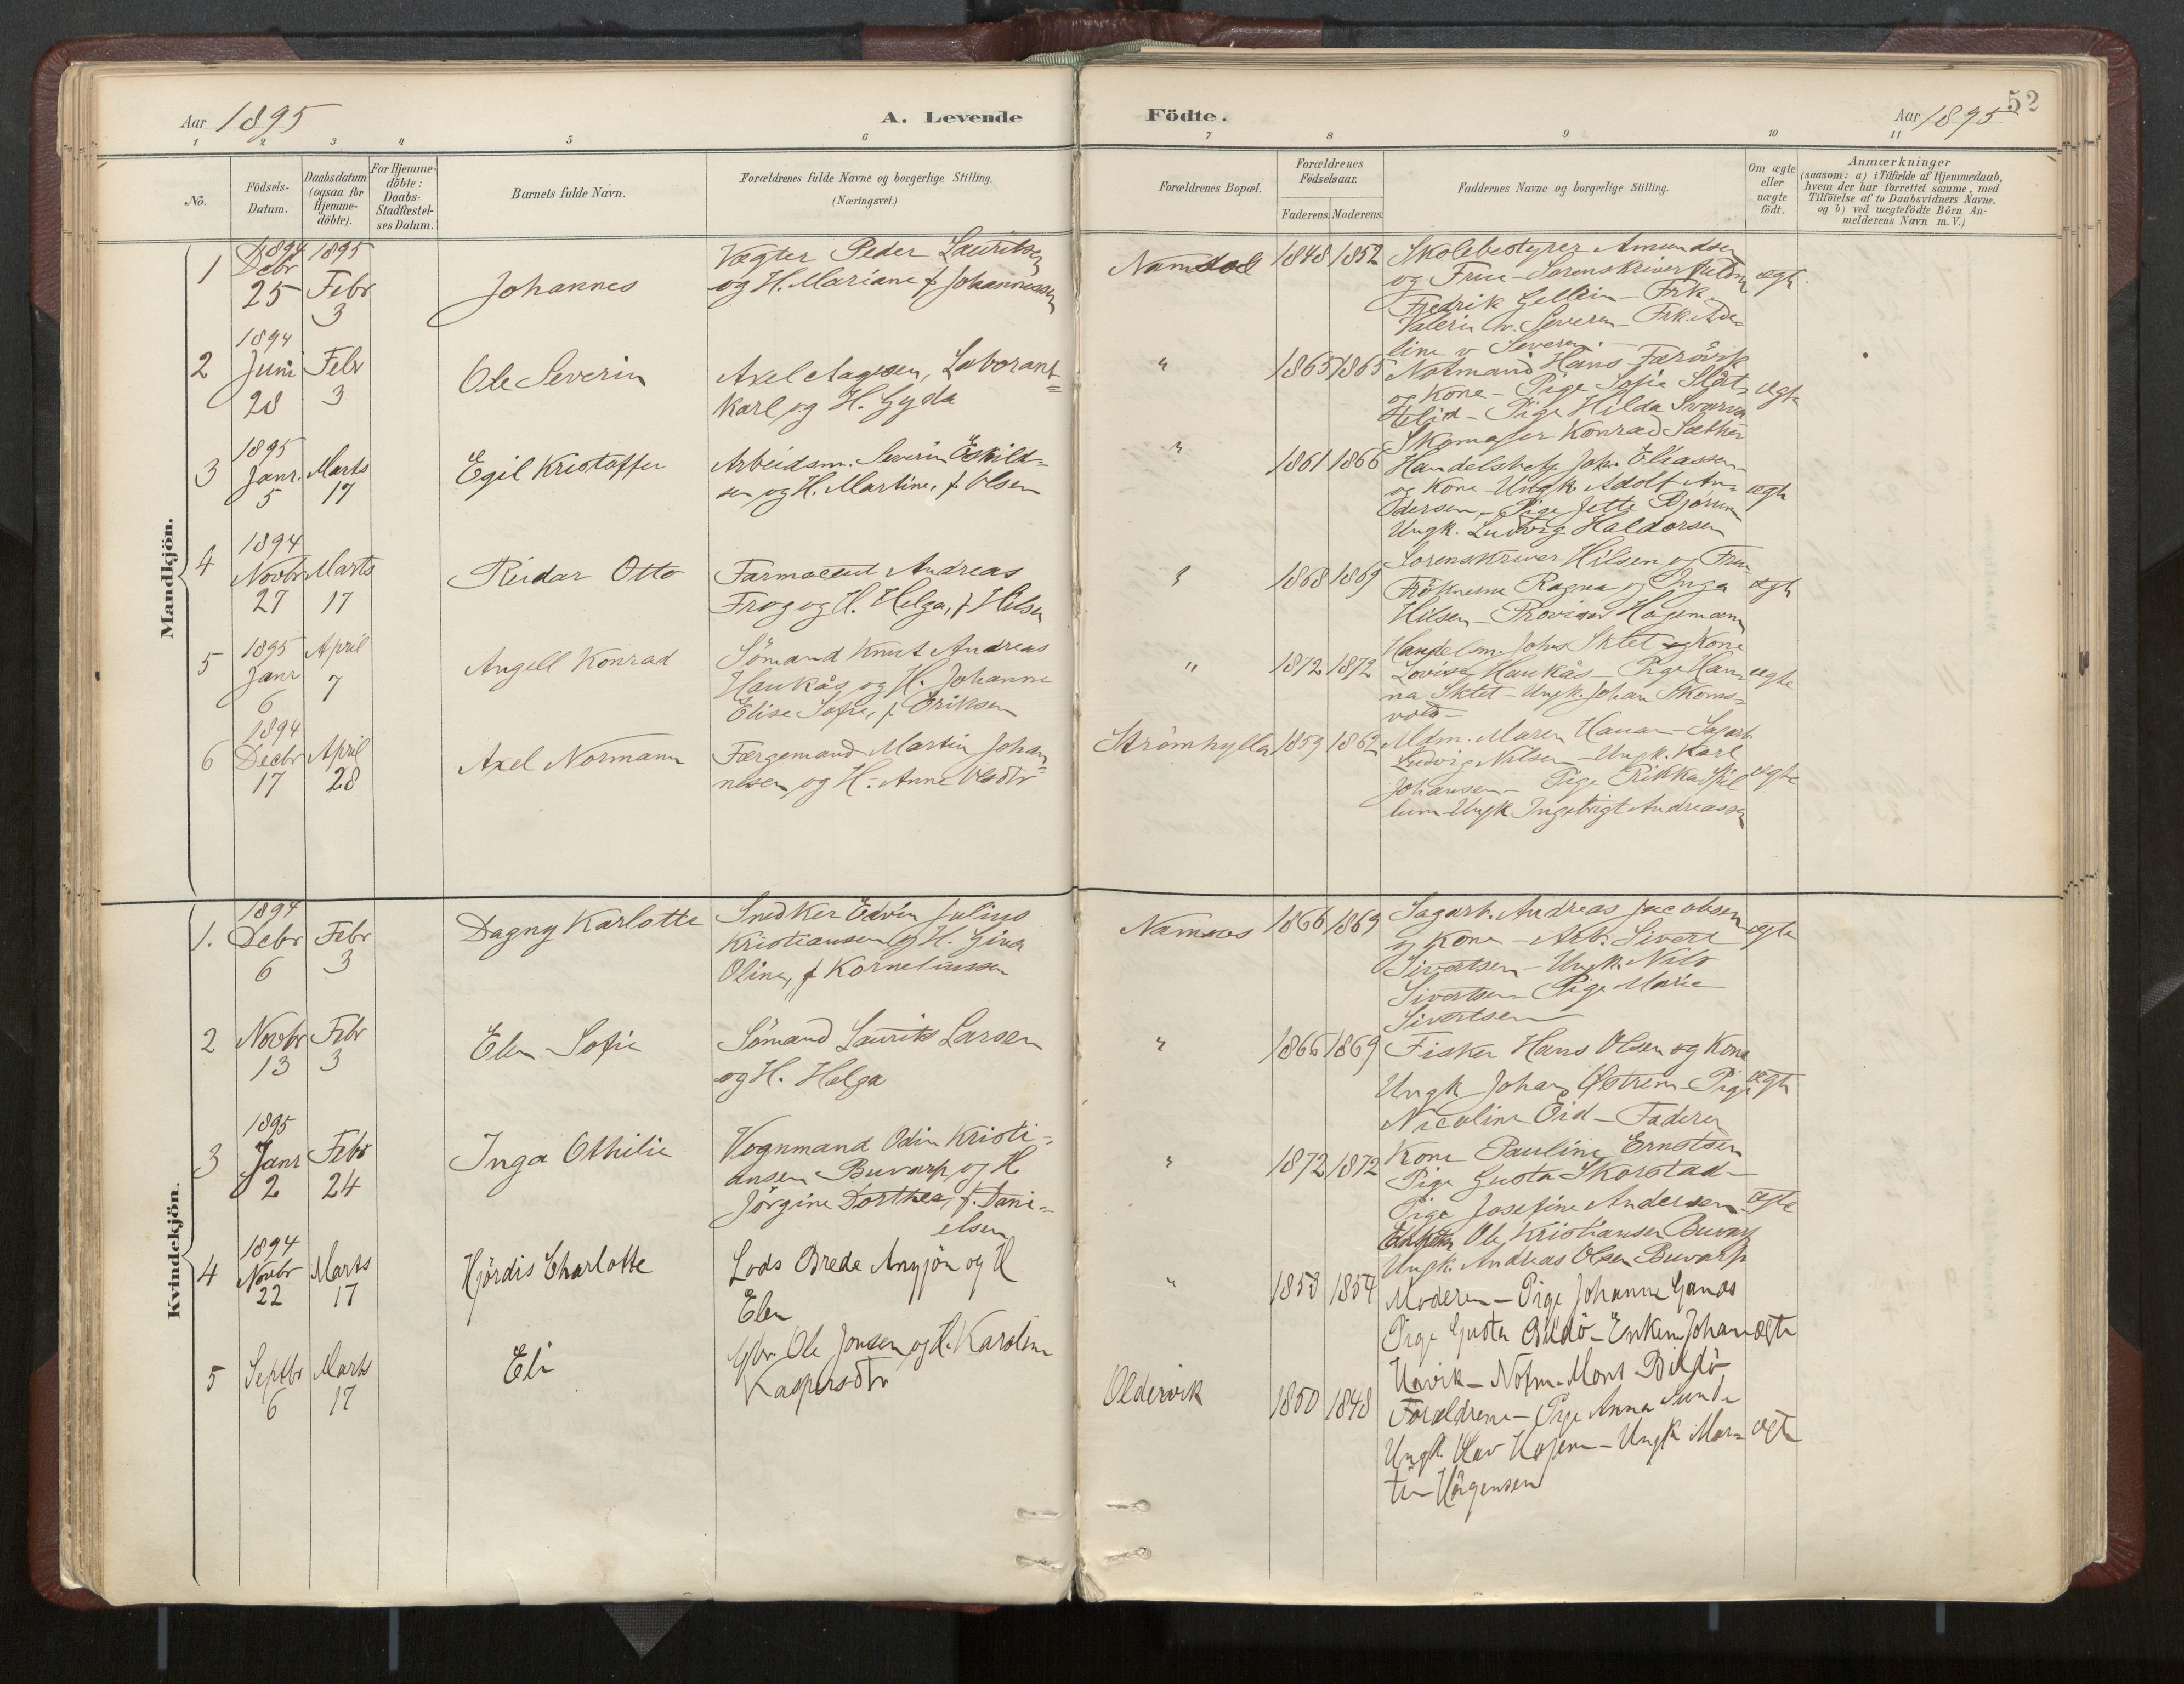 Aar 1895
A. Levende
Födte.
Aar 1895
52
1 2 3 4 5 6 7 8 9 10 11
No.
Födsels-
Datum.
Daabsdatum
(ogsaa for
Hjemme-
döbte).
For Hjemme-
döbte:
Daabs-
Stadfæstel-
ses Datum.
Barnets fulde Navn.
Forældrenes fulde Navne og borgerlige Stilling.
(Næringsvei.)
Forældrenes Bopæl.
Forældrenes
Födselsaar.
Faderens. Moderens.
Faddernes Navne og borgerlige Stilling.
Om ægte
eller
uægte
födt.
Anmærkninger
(saasom: a) i Tilfælde af Hjemmedaab,
hvem der har forrettet samme, med
Tilföielse af to Daabsvidners Navne.
og b) ved uægtefödte Börn An-
melderens Navn m.V.)
Mandkjön.
1
1894
Debr
25
1895
Febr
3
Johannes
Vægter Peder Lauritsen
og H. Mariane f Johannessen
1848 1852
Skolebestyrer Amundsen
og Frue - Sorenskriver
Fredrik Gellein - Frk.
Valerie v. Severen - Frk. Ade-
line v Severen. -
ægte
2
1894
Juni
28
Febr
3
Ole Severin
Axel Aagesen, Laborant-
karl og H. Gyda
"
1865 1865
Notmand Hans Færövik
og Kone - Pige Sofie Slöt-
- Pige Hilda
Skomager Konrad Sæther
ægte
3
1895
Janr.
5
Marts
17
Egil Kristoffer
Arbeidsm. Severin Eskild-
sen og H. Martine, f. Olsen
"
1861 1866
Handelsbetj. John Eliassen
og Kone - Ungk. Adolf An-
dersen - Pige Jette Bjørum
Ungk. Ludvig Haldorsen
ægte
4
1894
Novbr
27
Marts
17
Reidar Otto
Farmaceut Andreas
Frog og H. Helga, f Hilsen
"
1868 1869
Sorenskriver Hilsen og Frue
Frøknerne Ragna og Inga
Hilsen - Provisor Hagemann
ægte
5
1895
Janr
6
April
7
Angell Konrad
Sömand Knut Andreas
Haukås og H. Johanne
Elise Sofie, f. Eriksen
"
1872 1872
Handelsm. Johs Sktet og Kone
Lovise Haukås - Pige Han-
na Sktet - Ungk. Johan Skoms-
vold -
ægte
6
1894
Decbr
17
April
28
Axel Normann
Færgemand Martin Johan-
nesen og H. Anne Olsdtr
Strömhylla
1859 1862
Mdm. Maren Hauan - Sagarb.
Ludvig Nilsen - Ungk. Karl
Johansen - Pige Rikka Spil-
lum - Ungk Ingebrigt Andreassen
ægte
Kvindekjön.
1.
1894
Debr
6
Febr
3
Dagny Karlotte
Snedker Edvin Julius
Kristiansen og H. Gina
Oline, f Korneliussen
Namsos
1866 1869
Sagarb. Andreas Jacobsen
og Kone - Arb. Sivert
Sivertsen - Ungk. Nils
Sivertsen Pige Marie
Sivertsen
ægte
2
Novbr
13
Febr
3
Elen Sofie
Sömand Laurits Larsen
og H. Helga
"
1866 1869
Fisker Hans Olsen og Kone
Ungk Johan Østrem - Pige
Nicoline Eid - Faderen
ægte
3
1895
Janr
2
Febr
24
Inga Othilie
Vognmand Odin Kristi-
ansen Buvarp og H
Jörgine Dorthea, f. Dani-
elsen
"
1872 1872
Kone Pauline Ernstsen
Pige Gusta Skorstad -
Pige Josefine Andersen
Ole Kristiansen Buvarp
Ungk. Andreas Olsen Buvarp
ægte
4
1894
Novbr
22
Marts
17
Hjördis Charlotte
Lods Brede Angjön og H
Elen
"
1853 1854
Moderen - Pige Johanne Ganæs
Pige Gusta Bildö - Enkem Johan
Havik - Notm. Mons Bildö
ægte
5
Septbr
6
Marts
17
Eli
Gbr. Ole Jonsen og H. Karolin
Kaspersdtr
Oldervik
1850 1848
Forældrene - Pige Anna Sunde
Ungk. Olav - Ungk Mar-
tin Hågensen
ægte